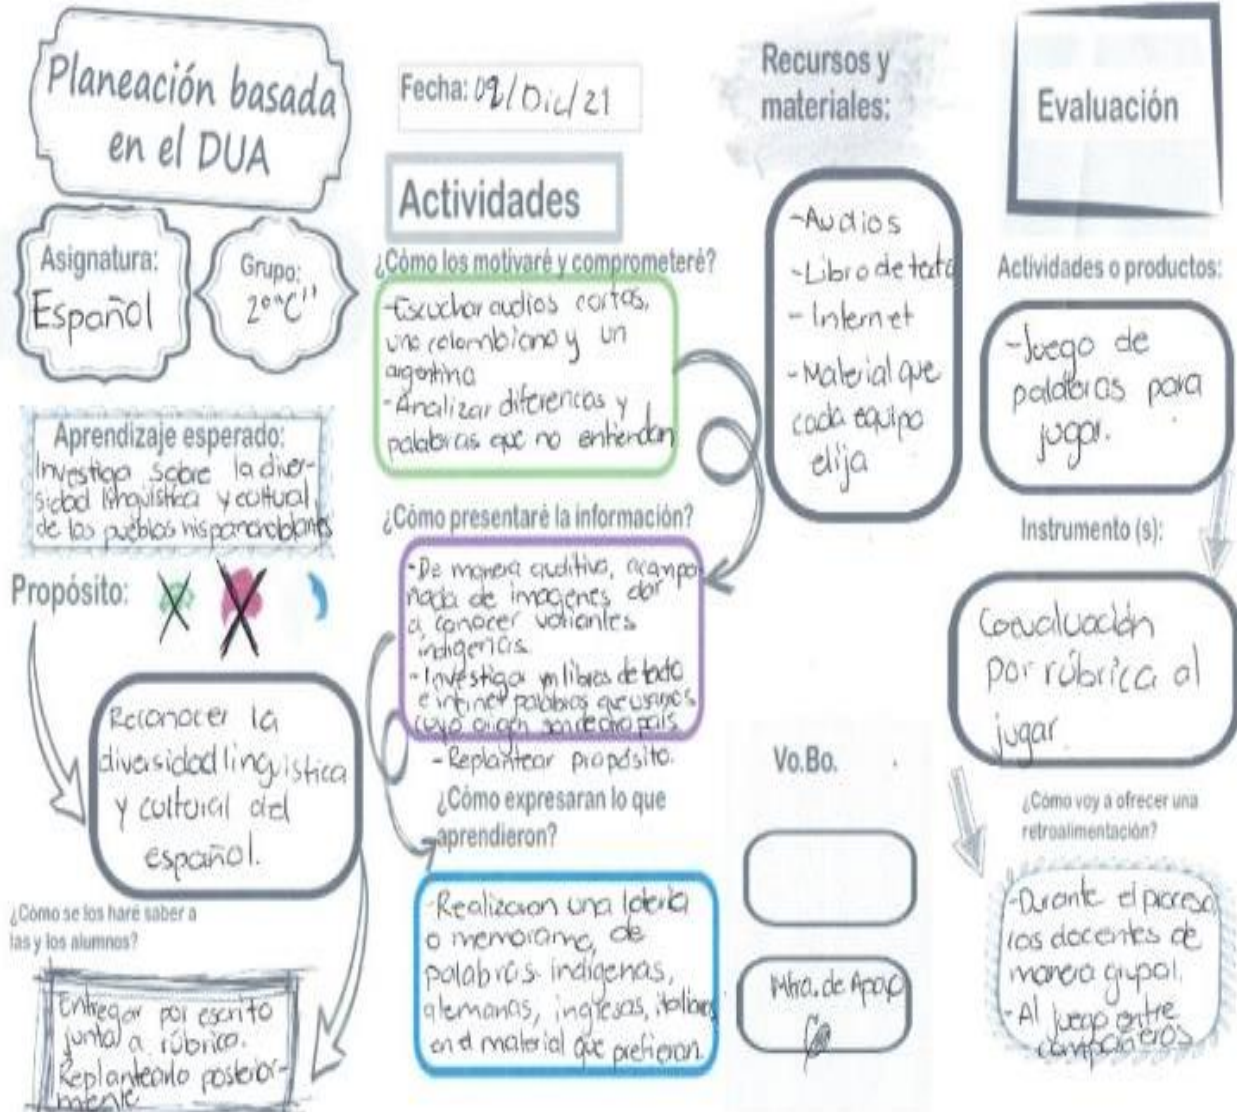 Planeación basada
en el DUA
Asignatura:
Español
Grupo:
2° "C"
Aprendizaje esperado:
Investiga sobre la diver-
sidad lingüística y cultual
de los pueblos hispanohablantes
Propósito:
Reconocer la
diversidad lingüistica
y cultural del
español.
¿Cómo se los haré saber a
las y los alumnos?
Entregar por escrito
junto a rúbrica.
Replantearlo posterior-
mente
Fecha: /Dic/21
Actividades
¿Cómo los motivaré y comprometeré?
-Escuchar audios cortos,
uno colombiano y un
argentino
-Analizar diferencias y
palabras que no entiendan
¿Cómo presentaré la información?
-De manera auditiva, acompa-
ñada de imagenes dar
a conocer variantes
indigenas.
-Investigar en libros de texto
e internet palabras que usamos
cuyo origen son de otro país
-Replantear propósito.
¿Cómo expresaran lo que
aprendieron?
-Realizaron una lotería
o memorama, de
palabras indígenas,
alemanas, inglesas, italianas
en el material que prefieran.
Recursos y
materiales:
-Audios
-Libro de texto
-Internet
-Material que
cada equipo
elija
Vo.Bo.
Mtra. de Apoyo
Evaluación
Actividades o productos:
-Juego de
palabras para
jugar.
Instrumento (s):
Coevaluación
por rúbrica al
jugar.
¿Cómo voy a ofrecer una
retroalimentación?
-Durante el proceso
los docentes de
manera grupal.
-Al juego entre
compañeros